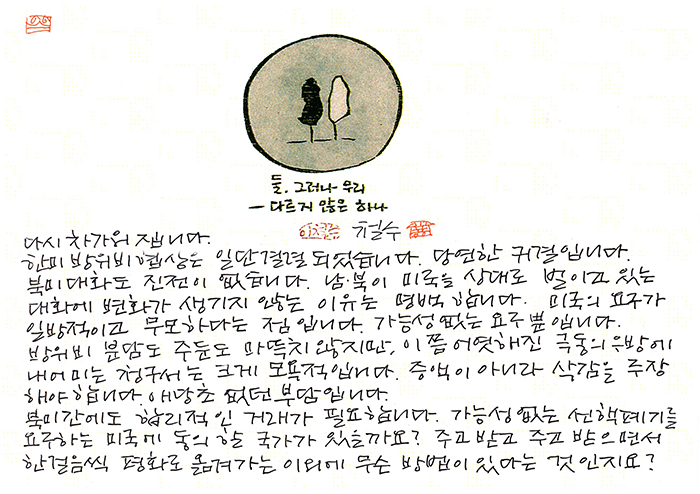 둘. 그러나 우리
— 다르지 않은 하나
철수
다시 차가워 집니다.
한미 방위비 협상은 일단 결렬 되었습니다. 당연한 귀결입니다.
북미대화도 진전이 없습니다. 남·북이 미국을 상대로 벌이고 있는
대화에 변화가 생기지 않는 이유는 명백 합니다. 미국의 요구가
일방적이고 무모하다는 점 입니다. 가능성 없는 요구 뿐 입니다.
방위비 분담도 주둔도 마뜩치 않지만, 이쯤 어엿해진 극동의 우방에
내어미는 청구서는 크게 모욕적입니다. 증액이 아니라 삭감을 주장
해야 합니다. 애당초 없던 부담입니다.
북미간에도 합리적인 거래가 필요합니다. 가능성 없는 선핵폐기를
요구하는 미국에 동의 할 국가가 있을까요? 주고 받고 주고 받으면서
한걸음씩 평화로 옮겨가는 이외에 무슨 방법이 있다는 것 인지요?